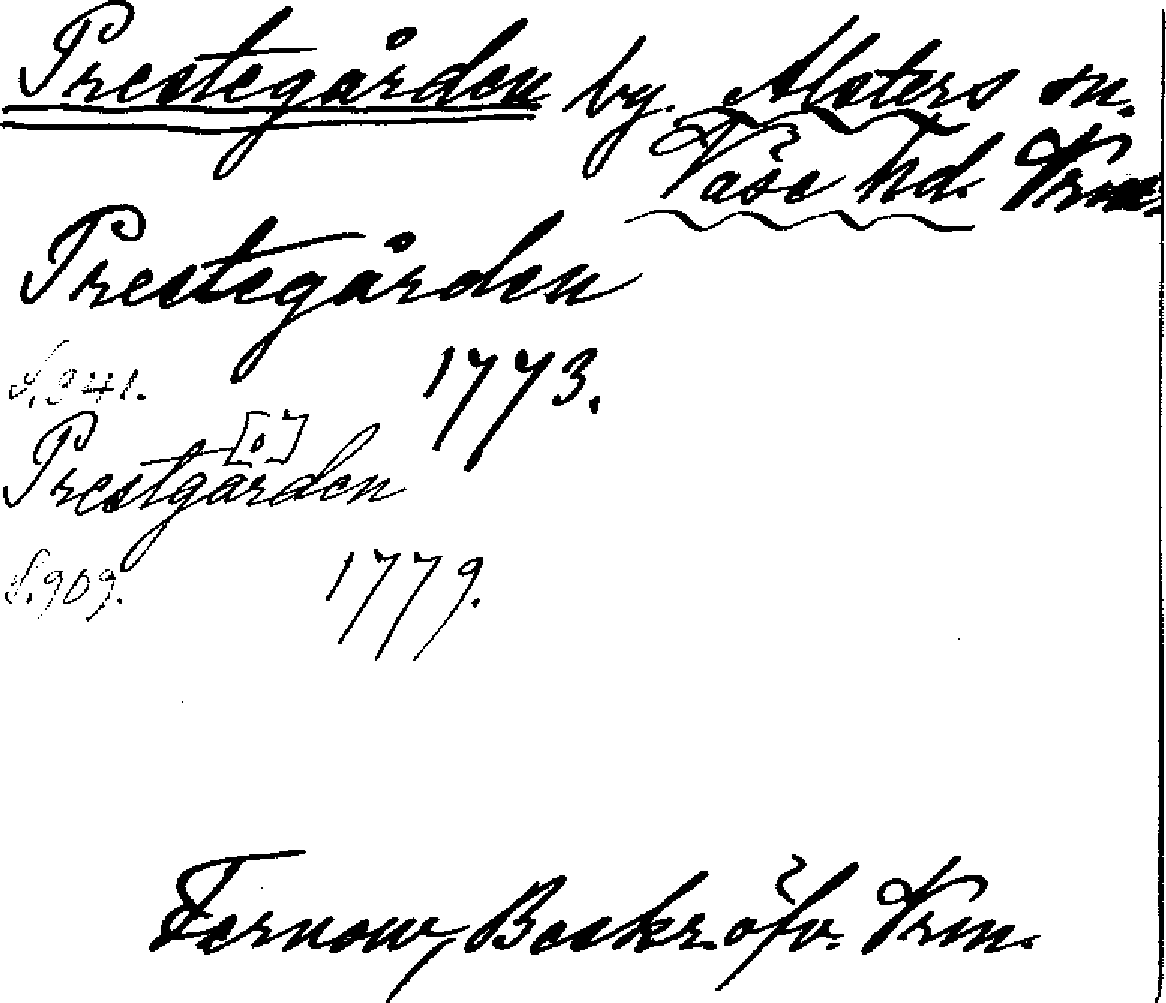 Prestegården by. Alsters sn.
Väse hd. Vrm.
Prestegården
S. 341. 1773.
Prestgården [o]
S. 909. 1779.
Fernow, Beskr. öfv. Vrm.